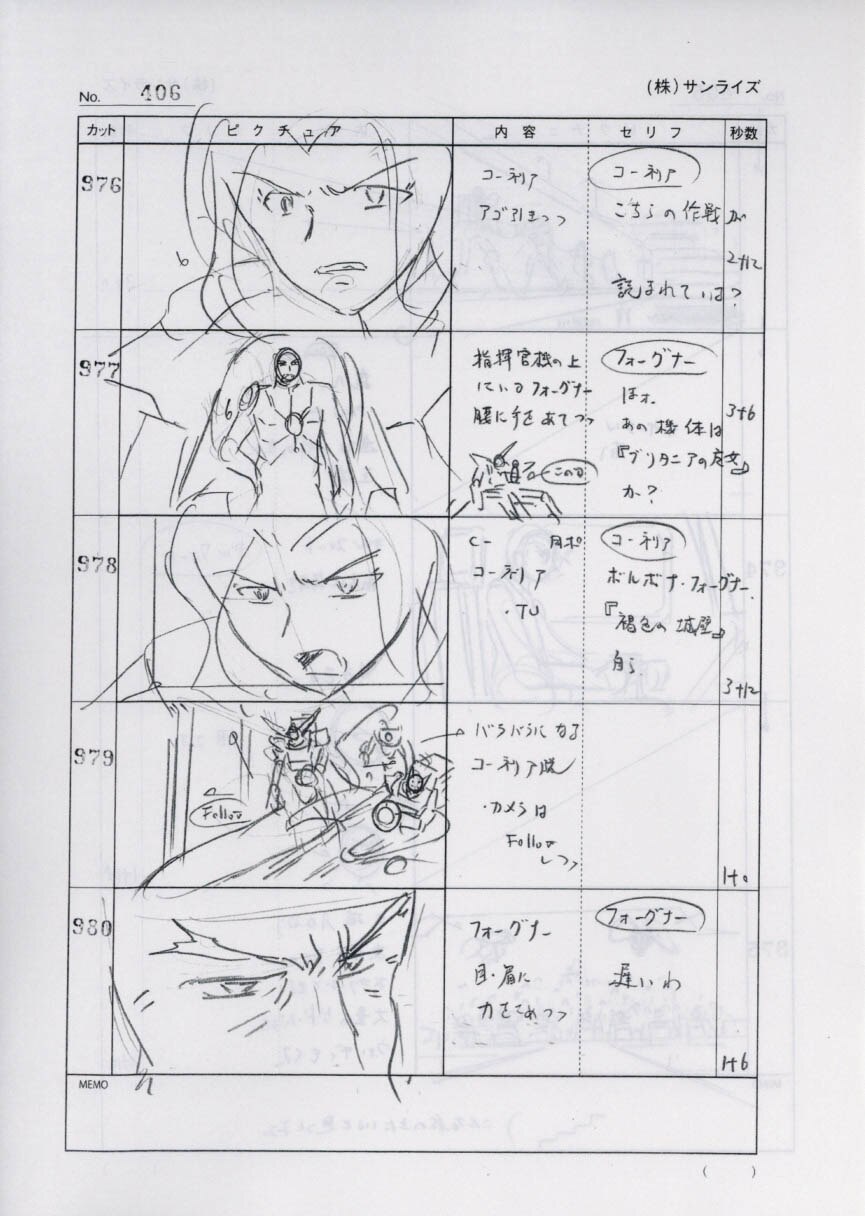 No. 406
(株)サンライズ
カット
ピクチュア
内容
セリフ
秒数
976
コーネリア
アゴ引きつつ
コーネリア
こちらの作戦が
読まれていは?
2+12
977
指揮官機の上
にいるフォーグナー
腰に手をあてつつ
フォーグナー
ほォ、
あの機体は
『ブリタニアの魔女』
か?
3+6
978
コーネリア
・TU
コーネリア
ボルボナ・フォーグナー、
『褐色の城壁』
自ら
3+12
979
Follow
バラバラになる
コーネリア
・カメラは
Follow
しつつ
1+0
980
フォーグナー
目・眉に
力をこめつつ
フォーグナー
遅いわ
1+6
MEMO
( )